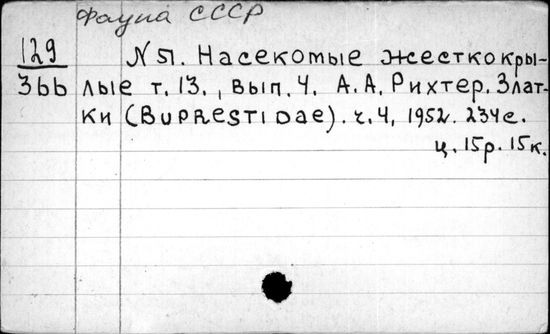 Фауна СССР
129
N 51. Насекомые жесткокры-
3bb лые т. 13., вып. 4. А. А. Рихтер. Злат-
ки (Buprestidae). ч. 4, 1952. 234 с.
ц. 15 р. 15 к.